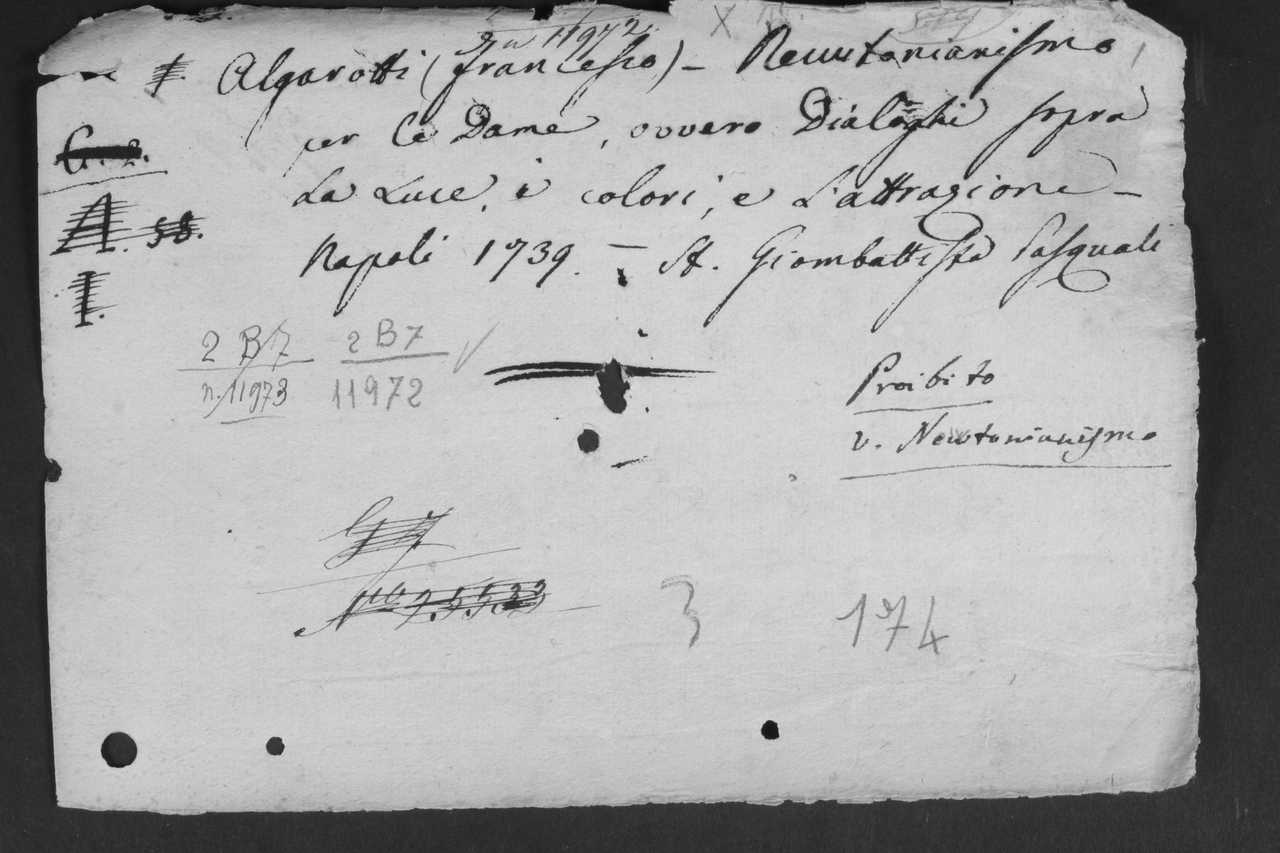 n 11972.
Algarotti (Francesco) – Neuutonianismo
per le Dame, ovvero Dialoghi sopra
La Luce, i colori, e L'attrazione –
Napoli 1739. – St. Giombattista Pasquali
G. 2.
A. 58.
I.
2 B 7
n. 11973
2 B 7
11972
Proibito
v. Newtonianismo
3
174